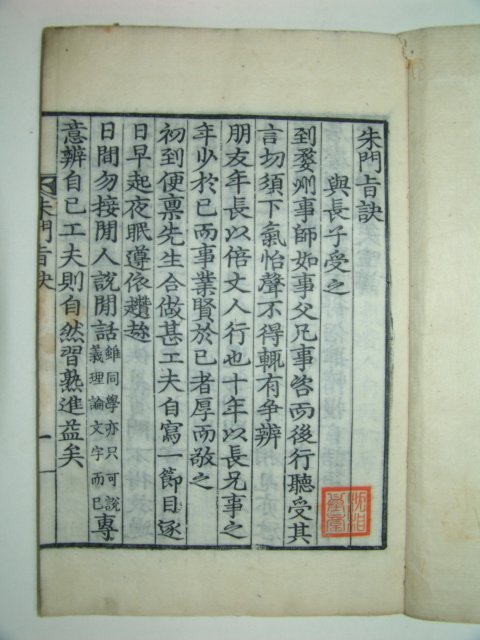 朱門旨訣
與長子受之
到婺州事師如事父凡事咨而後行聽受其
言切須下氣怡聲不得輒有爭辨
朋友年長以倍丈人行也十年以長兄事之
年少於已而事業賢於已者厚而敬之
初到便禀先生合做甚工夫自寫一節目逐
日早起夜眠遵依趲趁
日間勿接閒人說閒話雖同學亦只可說義理論文字而已專
意辨自已工夫則自然習熟進益矣
朱門旨訣
一